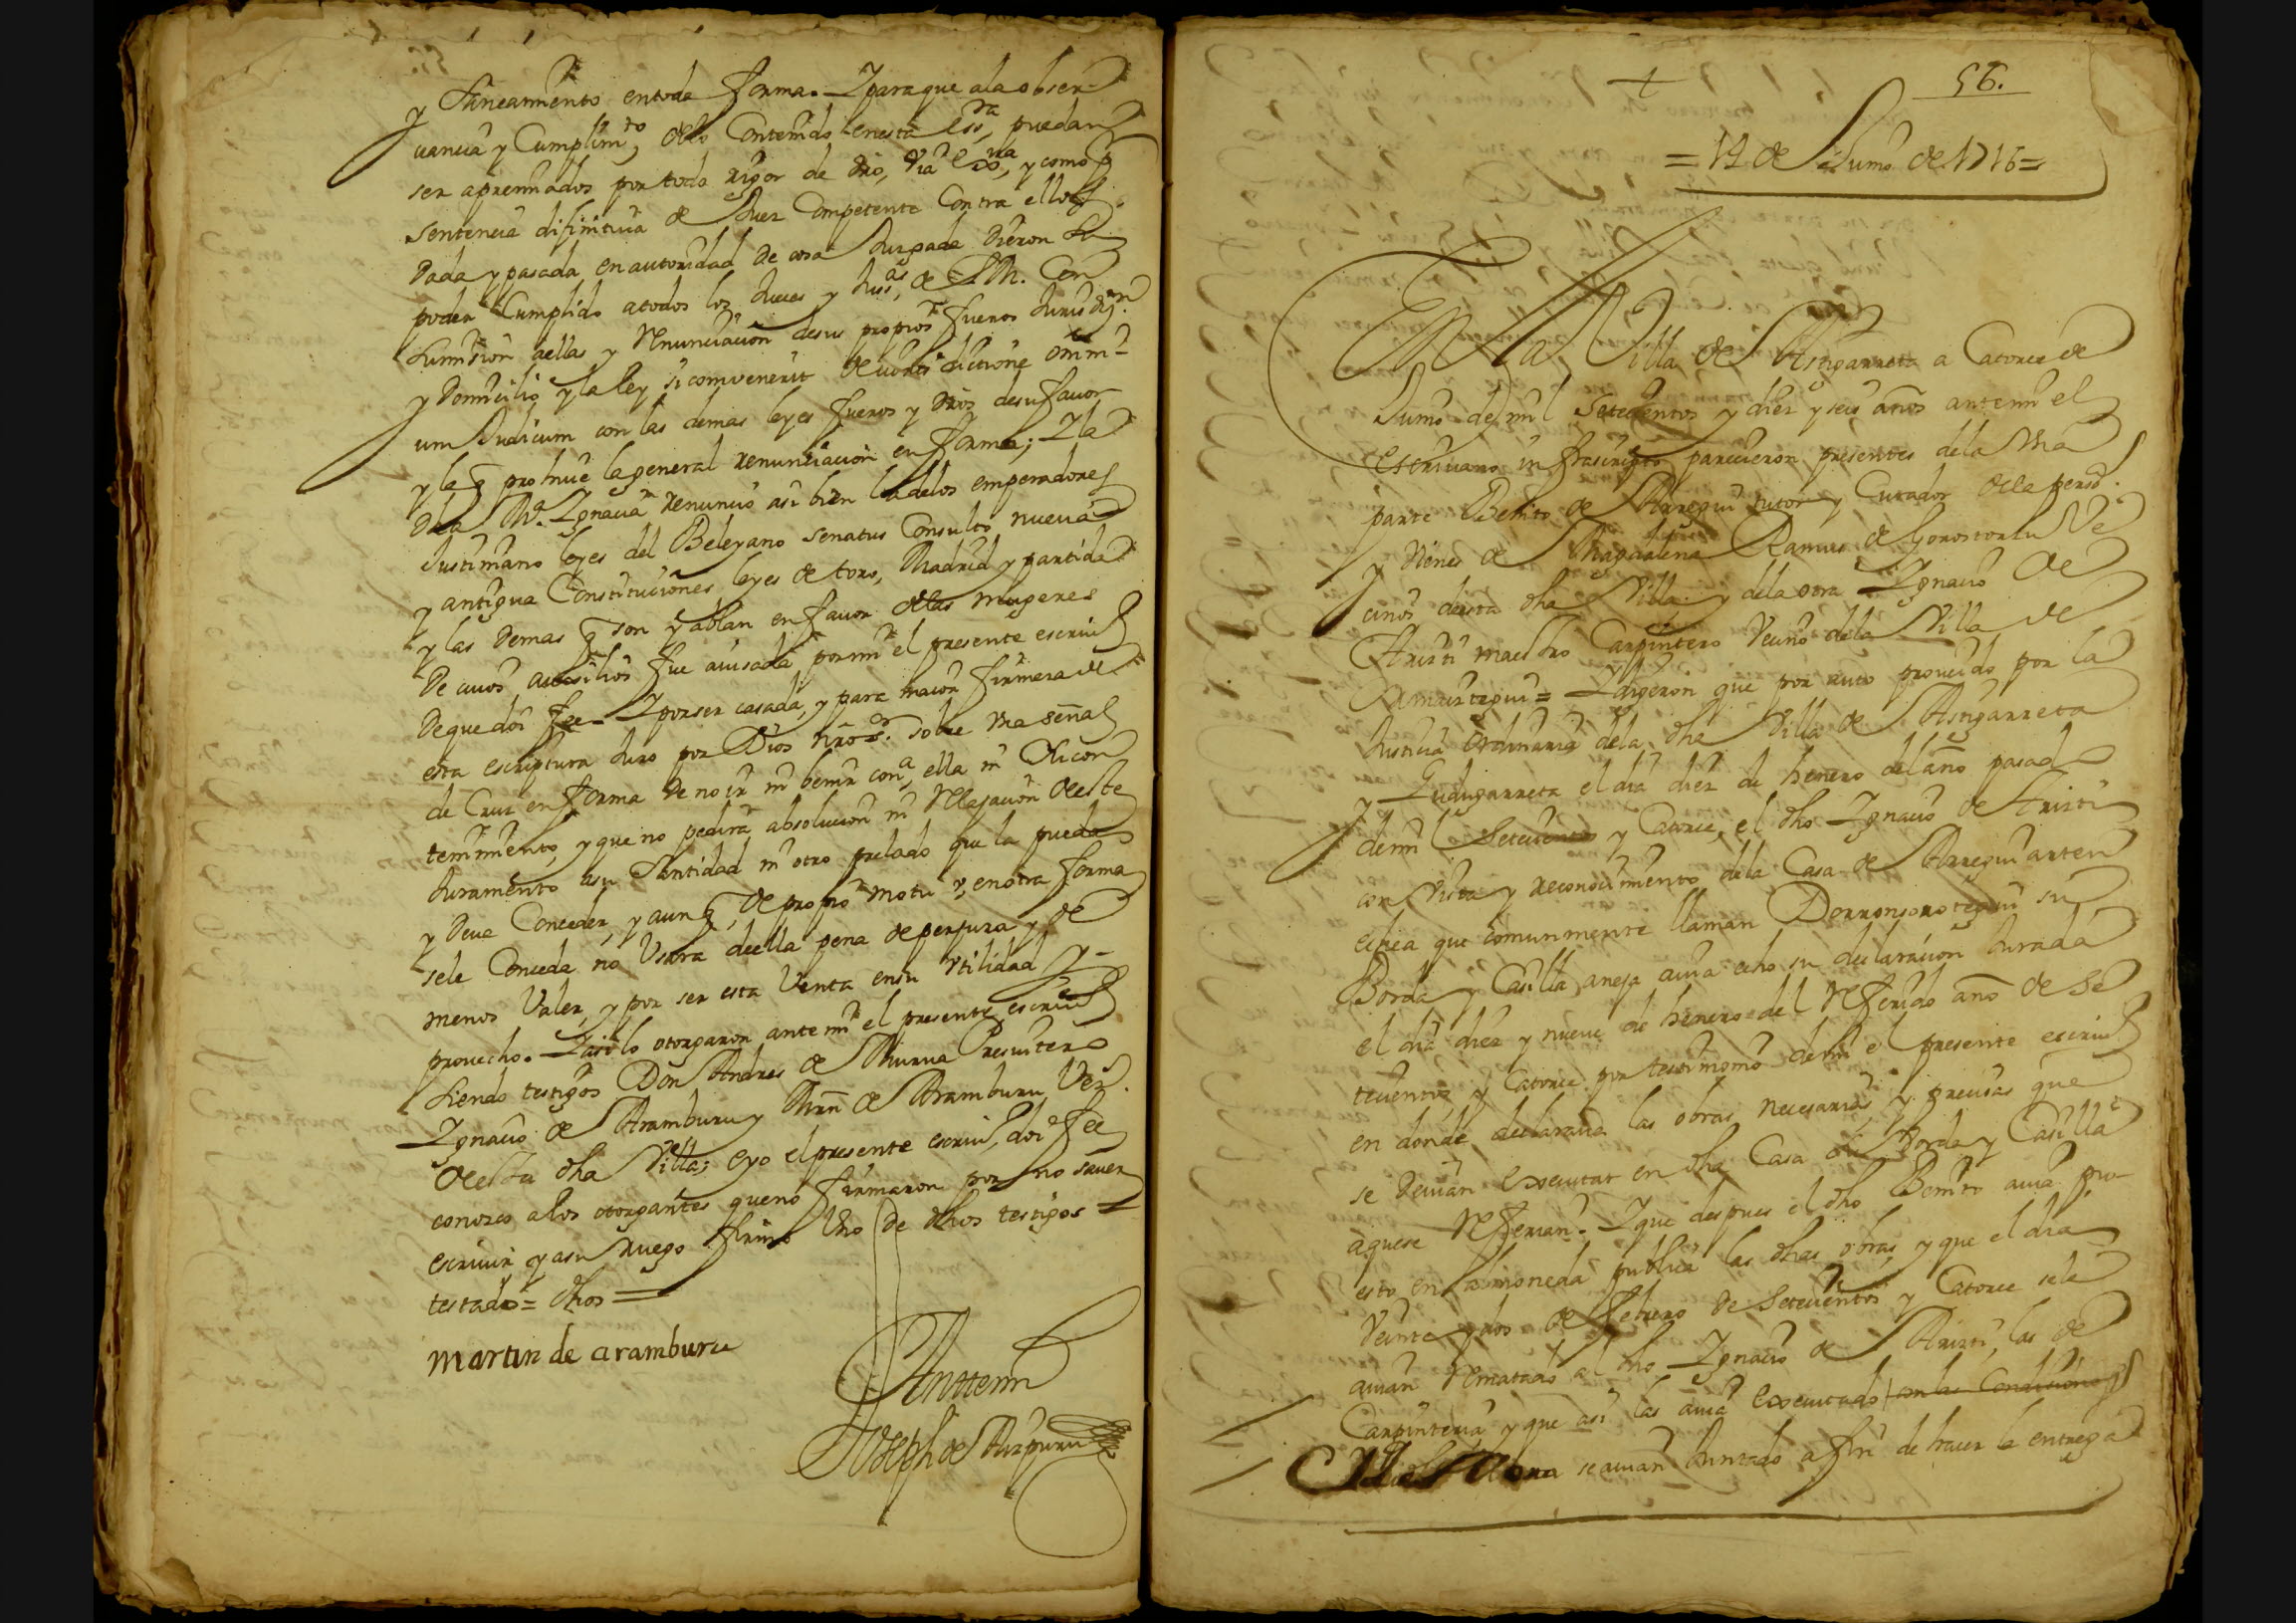 y Saneamiento entoda forma. Y para que ala obser-
uancia y Cumplimto, delo Contenido enesta essra, puedan
ser apremiados por todo rigor de dro, Via exoua, y como p
sentencia difinitiua de Juez Competente Contra ellos
dada y pasada en autoridad de cosa Juzgada dieron su
poder Cumplido atodos los Jueces y Jussas, de S.M. Con
sumision aellas y Renunciacion desus propios fueros Jurisdizn
y Domicilio y la ley si comvenerit de iurisdictione omni-
um Judicum con las demas leyes fueros y dros desu fauor
y la q prohiue la general renunciacion en forma; Y la
dha Ma. Ygnacia renuncio asi bien las delos emperadores
Justiniano leyes del Beleyano senatus Consulto nueua
y antigua Constituciones leyes de toro, Madrid y partida
y las demas q son y ablan en fauor delas mugeres
De cuios auxsilios fue auisada por mi el presente escriuo
de que doi fee- Y por ser casada, y para maior firmeza de
esta escriptura Juro por Dios nro sr. sobre vna señal
de Cruz en forma de no ir ni benir cona ella ni Oi con
temimento, y que no pedira absolucion ni Relajacion deeste
Juramento asu Santidad ni otro prelado que la pueda
y deua Conceder, y aunq, de propio motu y, enotra forma
sele Conceda no Vsara deella pena de perjura y de
menos Valer, y por ser esta Venta ensu vtilidad y-
prouecho. Y asi lo otorgaron ante mi el presente escriuo
siendo testigos Don Andres de Murua Presuitero
Ygnacio de Aramburu y Mrn de Aramburu Vezs.
deesta dha Villa; eyo el presente escriuo, doi fee
conozco alos otorgantes queno firmaron por no sauer
escriuir y asu ruego firmo Vno de dhos testigos =
testado= dhos =
martin de aramburu
Antemi
Joseph de Aizpuru
56.
= 14 de Junio de 1716 =
En la Villa de Astigarreta a Catorce de
Junio de mil setecientos y diez y seis años ante mi el
escriuano infrascripto parecieron presentes dela vna
parte Benito de Arregui tutor y Curador dela perso.
y vienes de Magdalena Ramus de Gorostorzu Ve
cinos deesta dha Villa y dela otra Ygnacio de
Aristi maestro Carpintero Vecino dela Villa de
Amaiztegui= Y digeron que por auto proueido por la
Justicia Ordinaria dela dha Villa de Astigarreta
y Gudugarreta el dia diez de henero del año pasado
de mil Setecientos y Catorce, el dho Ygnacio de Aristi
con vista y reconocimiento dela Casa de Arregui arten
echea que comunmente llaman Dorronsorotegui su
Borda y Casilla aneja auia echo su declaracion Jurada
el dia diez y nueue de henero del Referido año de se
tecientos y Catorce por testimonio de mi el presente escriuo
en donde declaraua las obras necesarias y precisas que
se deuian executar en dha Casa de Borda y Casilla
aquese Referian. Y que despues el dho Benito auia pu-
esto en almoneda publica las dhas obras, y que el dia
Veinte y dos de febrero de setecientos y Catorce sele
auian Rematado al dho Ygnacio de Aristi, las de
Carpinteria y que asi las auia executado con las Condiciones
se auian Juntado a fin de hacer la entrega